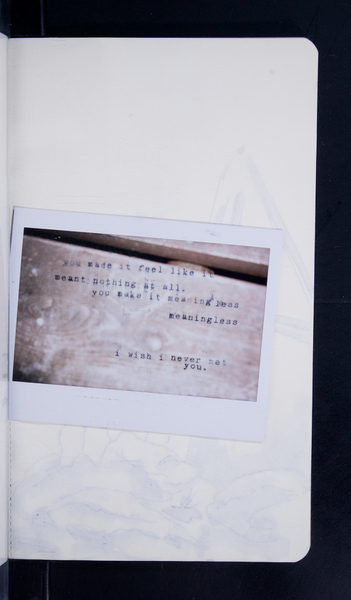 you made it feel like it
meant nothing at all.
you make it meaningless
meaningless
i wish i never met
you.